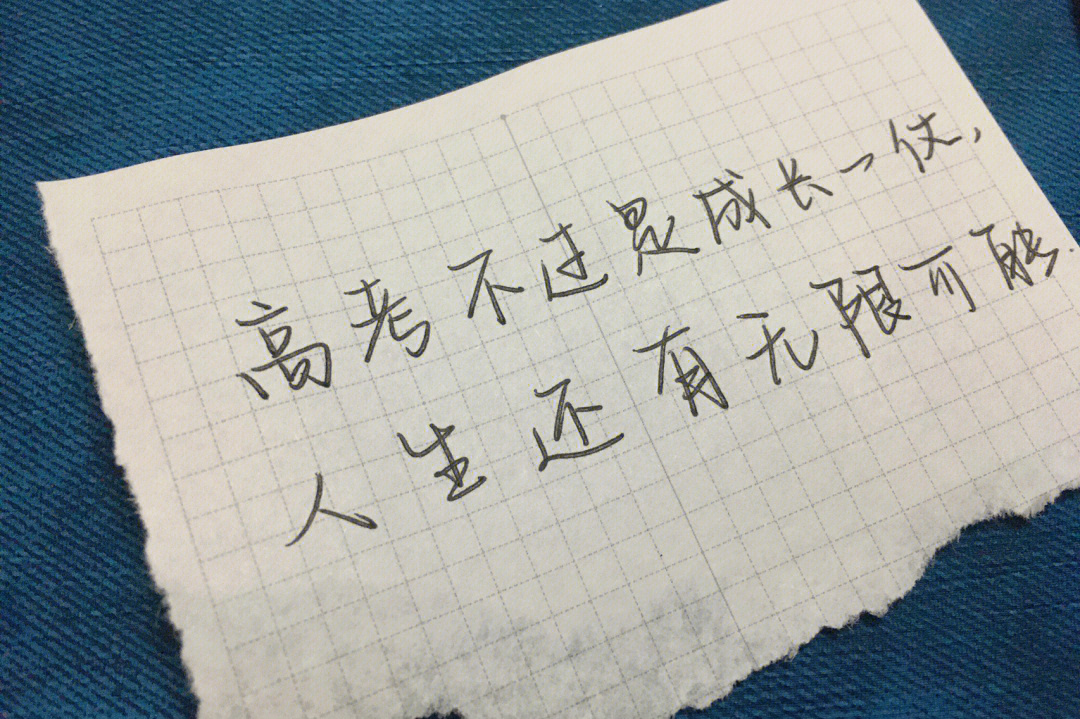 高考不过是成长一仗,
人生还有无限可能.